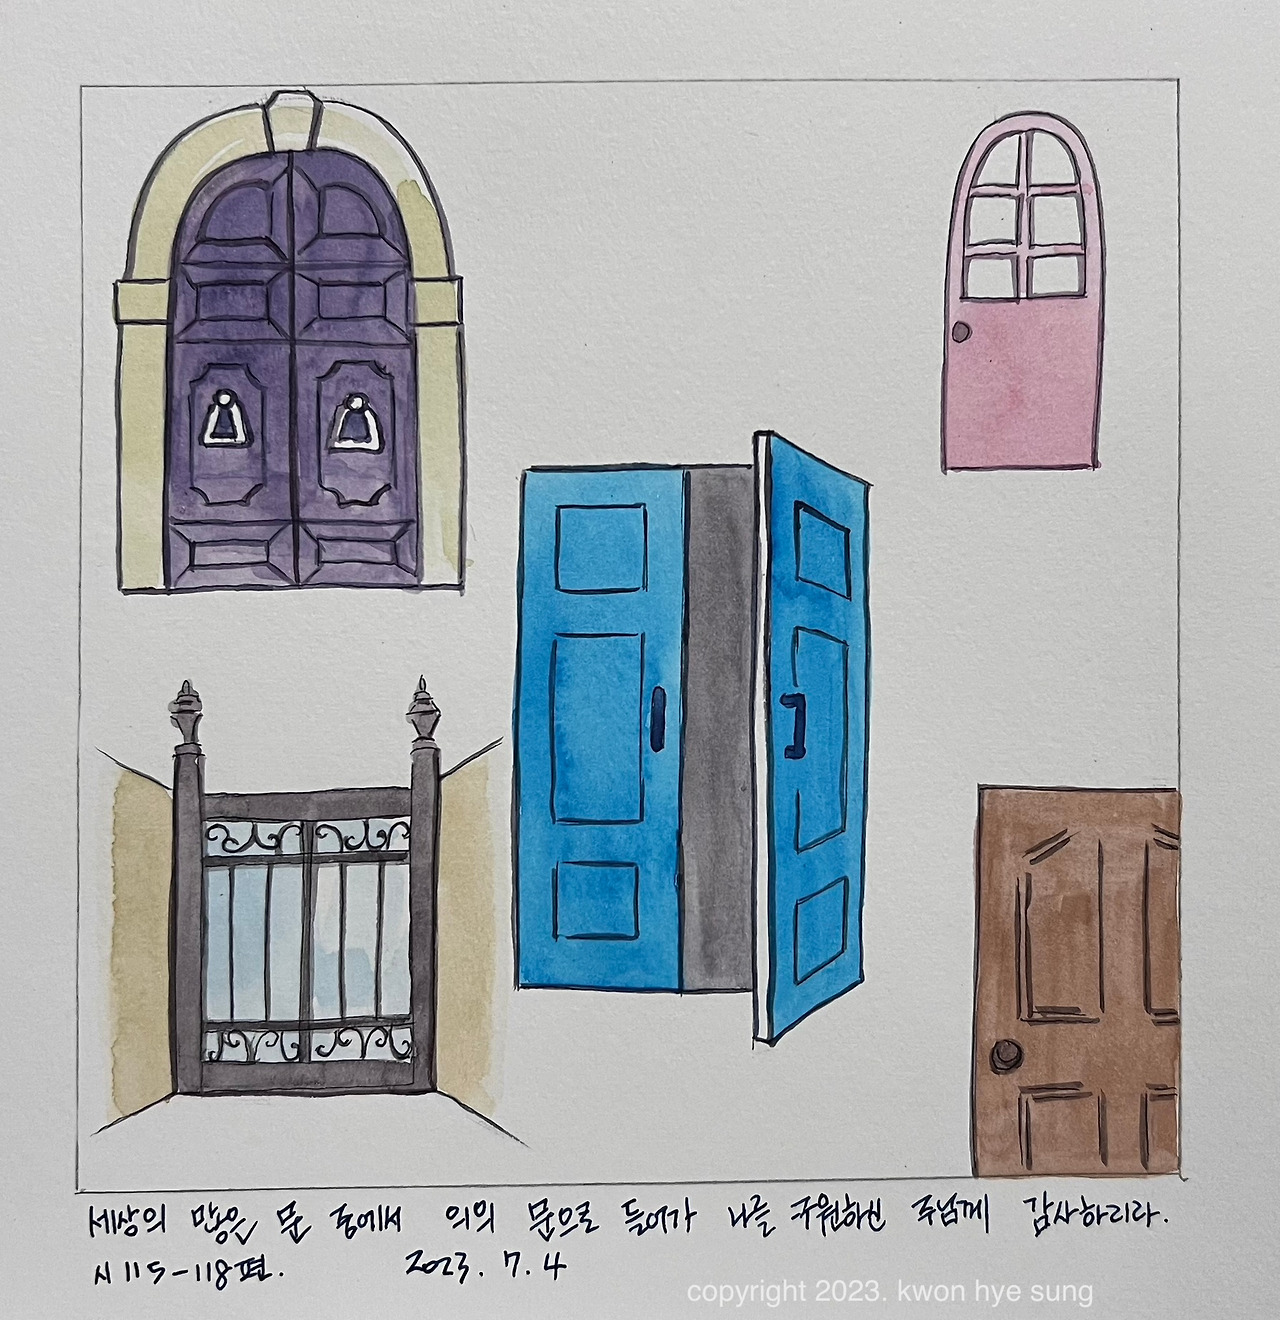 세상의 많은 문 중에서 의의 문으로 들어가 나를 구원하신 주님께 감사하리라.
시 115-118편. 2023. 7. 4
copyright 2023. kwon hye sung